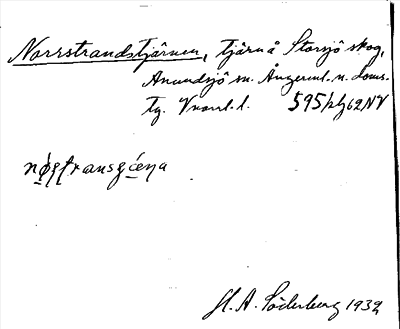 Norrstrandstjärnen, tjärn å Storsjö skog,
Anundsjö sn. Ångerml. n. doms.
tg. Vnorrl. l. 595/1/62NV
H. A. Söderberg 1932